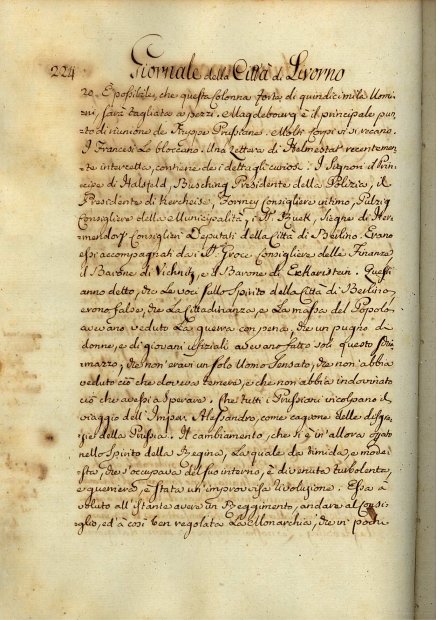 224 Giornale della Città di Livorno
ro. È possibile, che questa Colonna forte di quindicimila Uomi-
ni, sarà tagliata a pezzi. Magdebourg è il principale pun-
to di riunione de Truppe Prussiane. Molti Corpi vi si recano.
I Francesi Lo bloccano. Una Lettera di Helmestat recentemen-
te intercetta, contiene dei dettagli curiosi. I Signori il Prin-
cipe di Hatsfeld, Busching Presidente della Polizia, il
Presidente di Kercheise, Formey Consigliere intimo,
Consigliere della Municipalità, i Sr. Ruek, Siegre di Her-
mendorf Consiglieri Deputati della Città di Berlino. Erano
essi accompagnati dai Sr. Groce Consigliere delle Finanze,
il Barone di Vichnitz, e il Barone di Eckaristein. Questi
anno detto, che Le voci sullo Spirito della Città di Berlino
erono false, che La Cittadinanza, e La massa del Popolo
avevano veduto La guerra con pena, che un pugno di
donne, e di giovani ufiziali avevano fatto soli questo schia-
mazzo, che non eravi un solo Uomo Sensato, che non abbia
veduto ciò che doveva temere, e che non abbia indovinato
ciò che avessi a Sperare. Che tutti i Prussiani incolpano il
viaggio dell'Imper. Alesandro, come cagione delle disgra-
zie della Prussia. Il cambiamento, che si è in'allora oprato
nello Spirito della Regina, La quale da timida, e mode-
sta, che s'occupava del suo interno, è divenuta turbolenta,
e guerriera, è stata un'improvvisa rivoluzione. Essa à
voluto all'istante avere un Reggimento, andare al Consi-
glio, ed à così ben regolata La Monarchia, che in' pochi